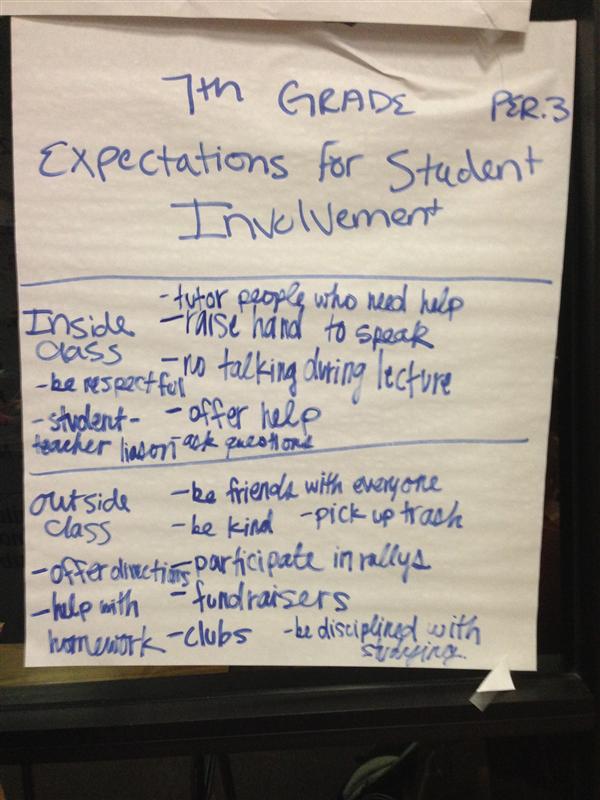 7th GRADE PER.3
Expectations for Student
Involvement
Inside
class
-be respectful
-student-
teacher liason
-tutor people who need help
-raise hand to speak
-no talking during lecture
-offer help
-ask questions
outside
class
-offer directions
-help with
homework
-be friends with everyone
-be kind -pick up trash
-participate in rallys
-fundraisers
-clubs -be disciplined with
studying.